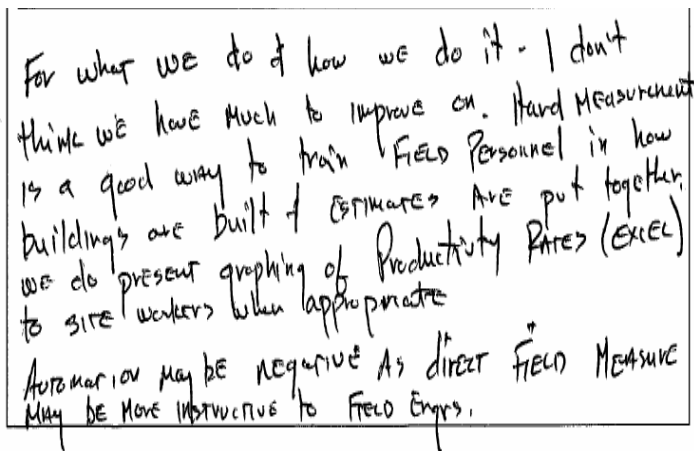 For what we do & how we do it - I don't
think we have much to improve on. Hard Measurement
is a good way to train Field Personnel in how
buildings are built & Estimates are put together.
we do present graphing of Productivity Rates (Excel)
to site workers when appropriate
Automation may be negative as direct Field Measure
may be more instructive to Field Engrs.